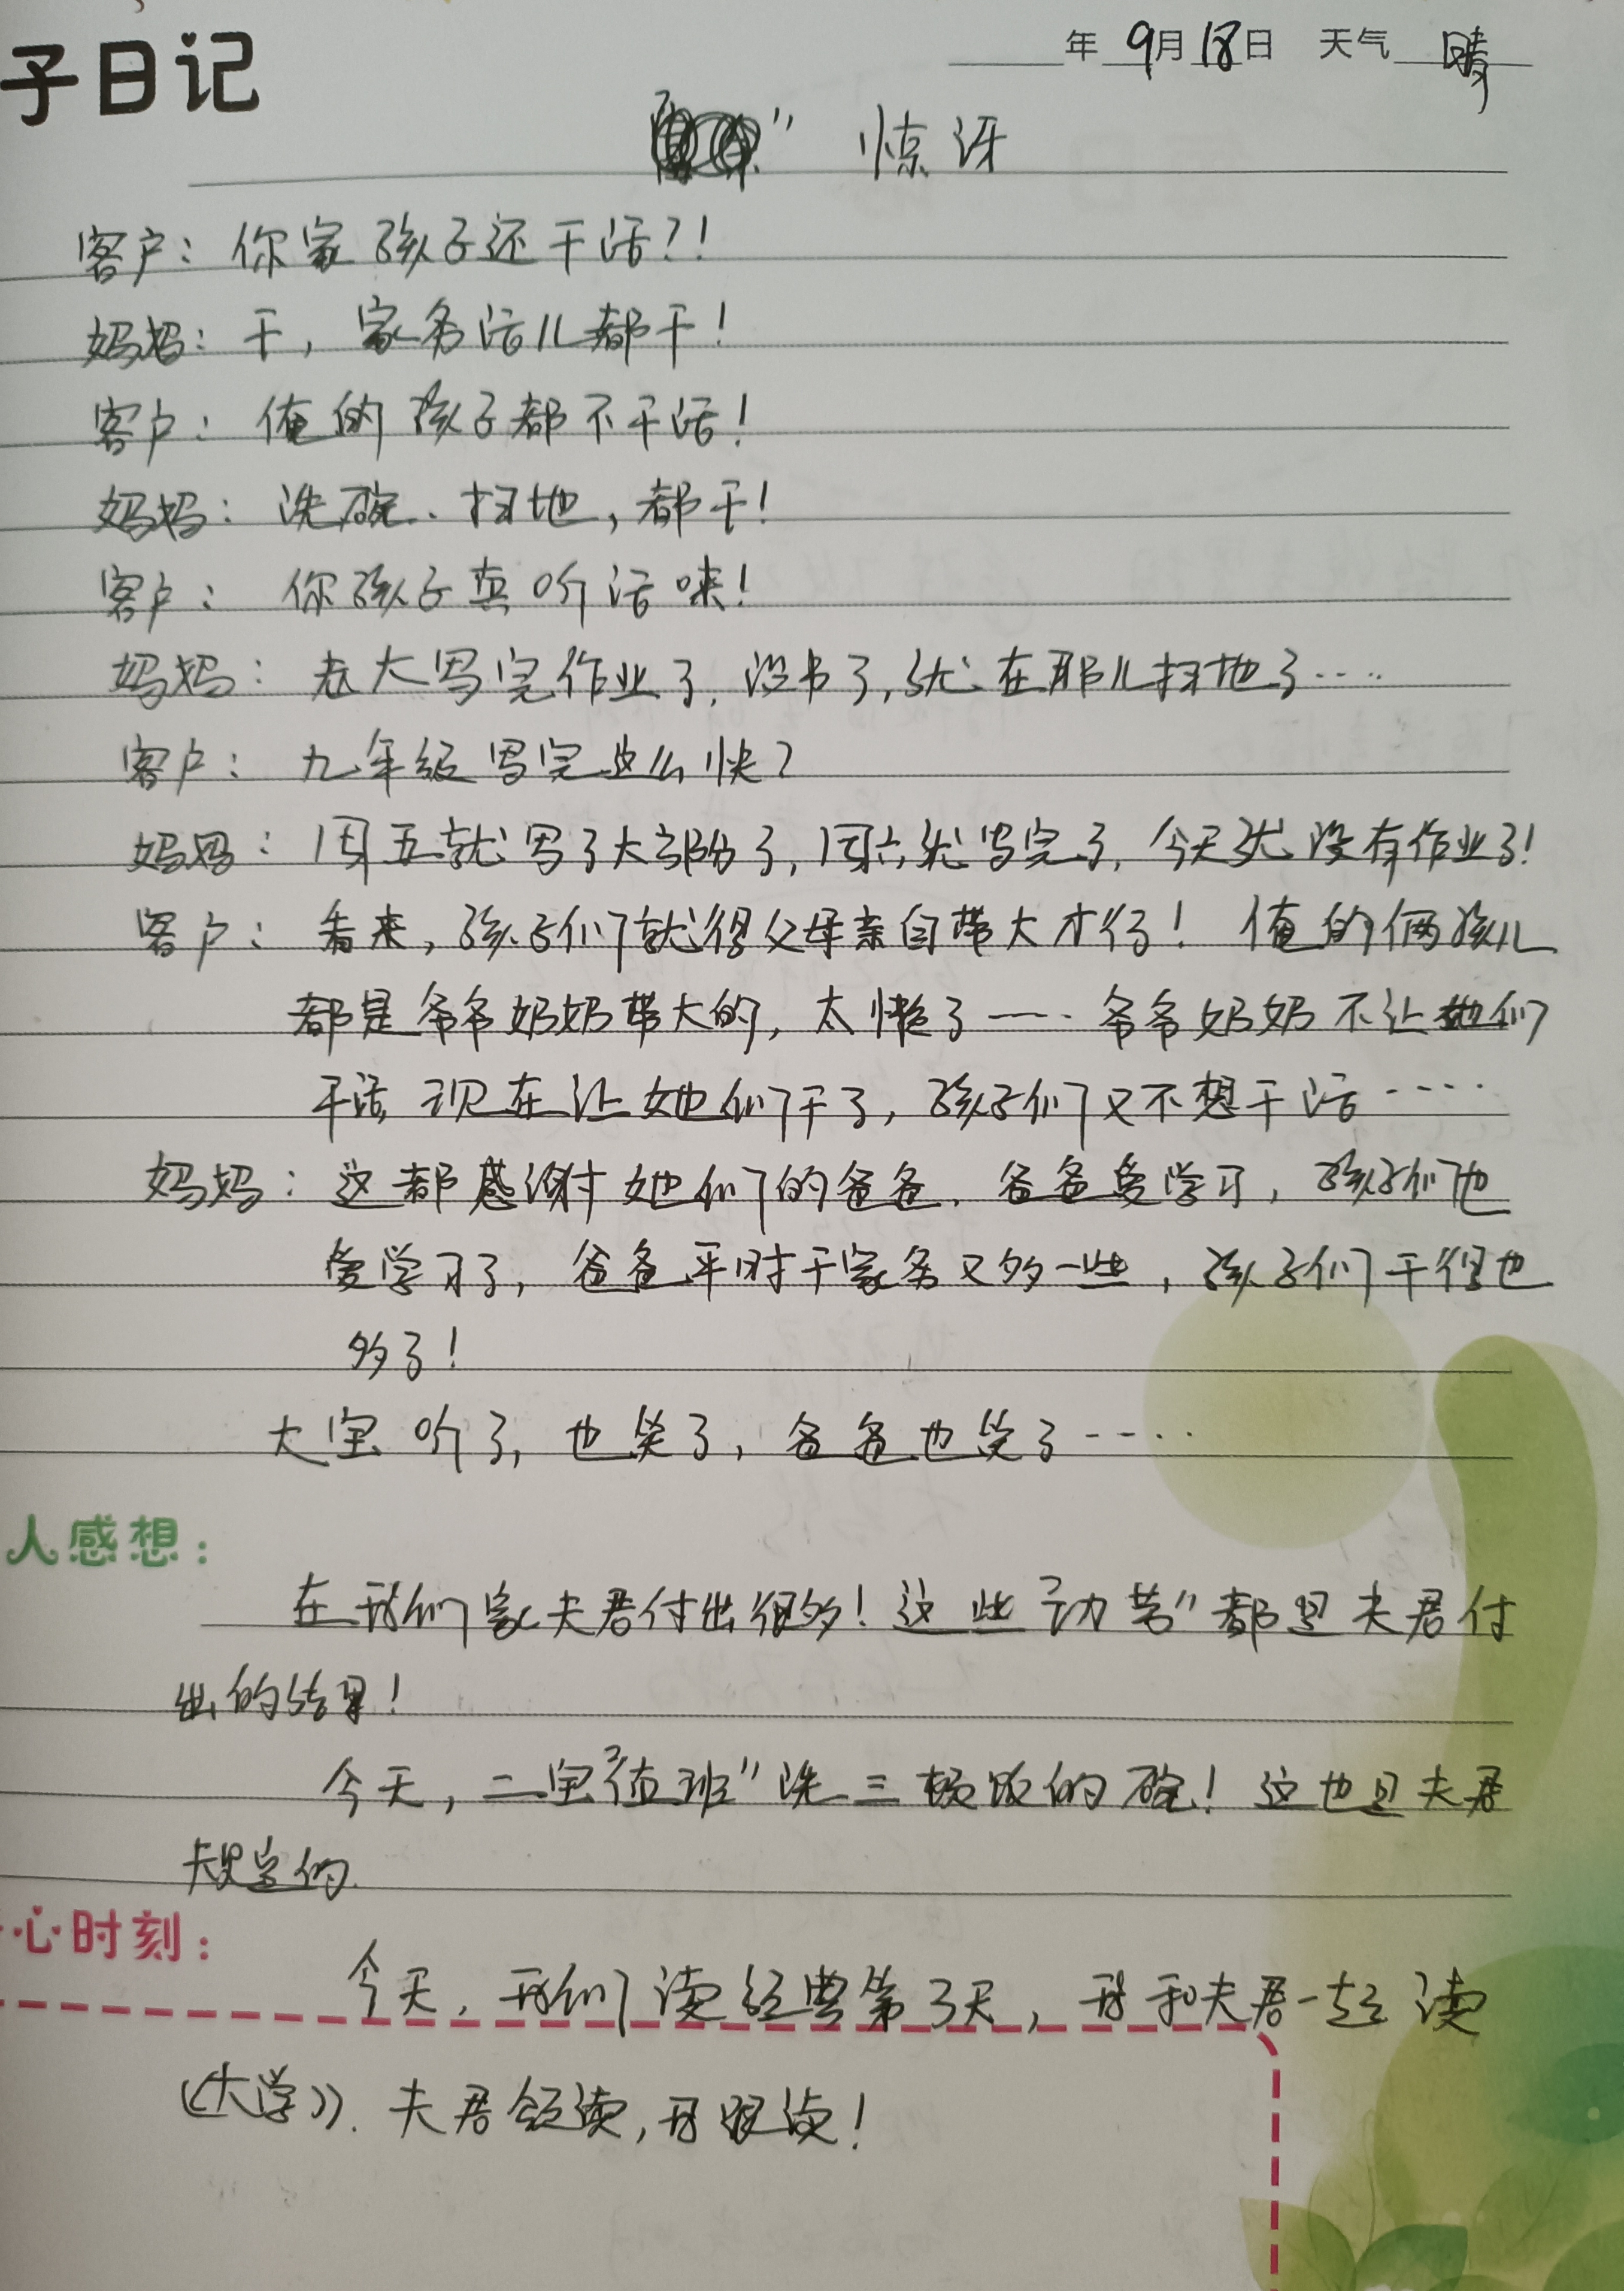 子日记
年 9月18日 天气 晴
” 惊讶
客户：你家孩子还干活？！
妈妈：干，家务活儿都干！
客户：俺的孩子都不干活！
妈妈：洗碗、扫地，都干！
客户：你孩子真听话唻！
妈妈：老大写完作业了，没书了，就在那儿扫地了……
客户：九年级写完这么快？
妈妈：周五就写了大部分了，周六就写完了，今天就没有作业了！
客户：看来，孩子们就得父母亲自带大才行！俺的俩孩儿
都是爷爷奶奶带大的，太懒了……爷爷奶奶不让她们
干活，现在让她们干了，孩子们又不想干活……
妈妈：这都感谢她们的爸爸，爸爸爱学习，孩子们也
爱学习了，爸爸平时干家务又多一些，孩子们干得也
多了！
大宝听了，也笑了，爸爸也笑了……
人感想：
在我们家夫君付出很多！这些“功劳”都是夫君付
出的结果！
今天，二宝“值班”洗三顿饭的碗！这也是夫君
规定的．
心时刻：
今天，我们读经典第3天，我和夫君一起读
《大学》．夫君领读，我跟读！